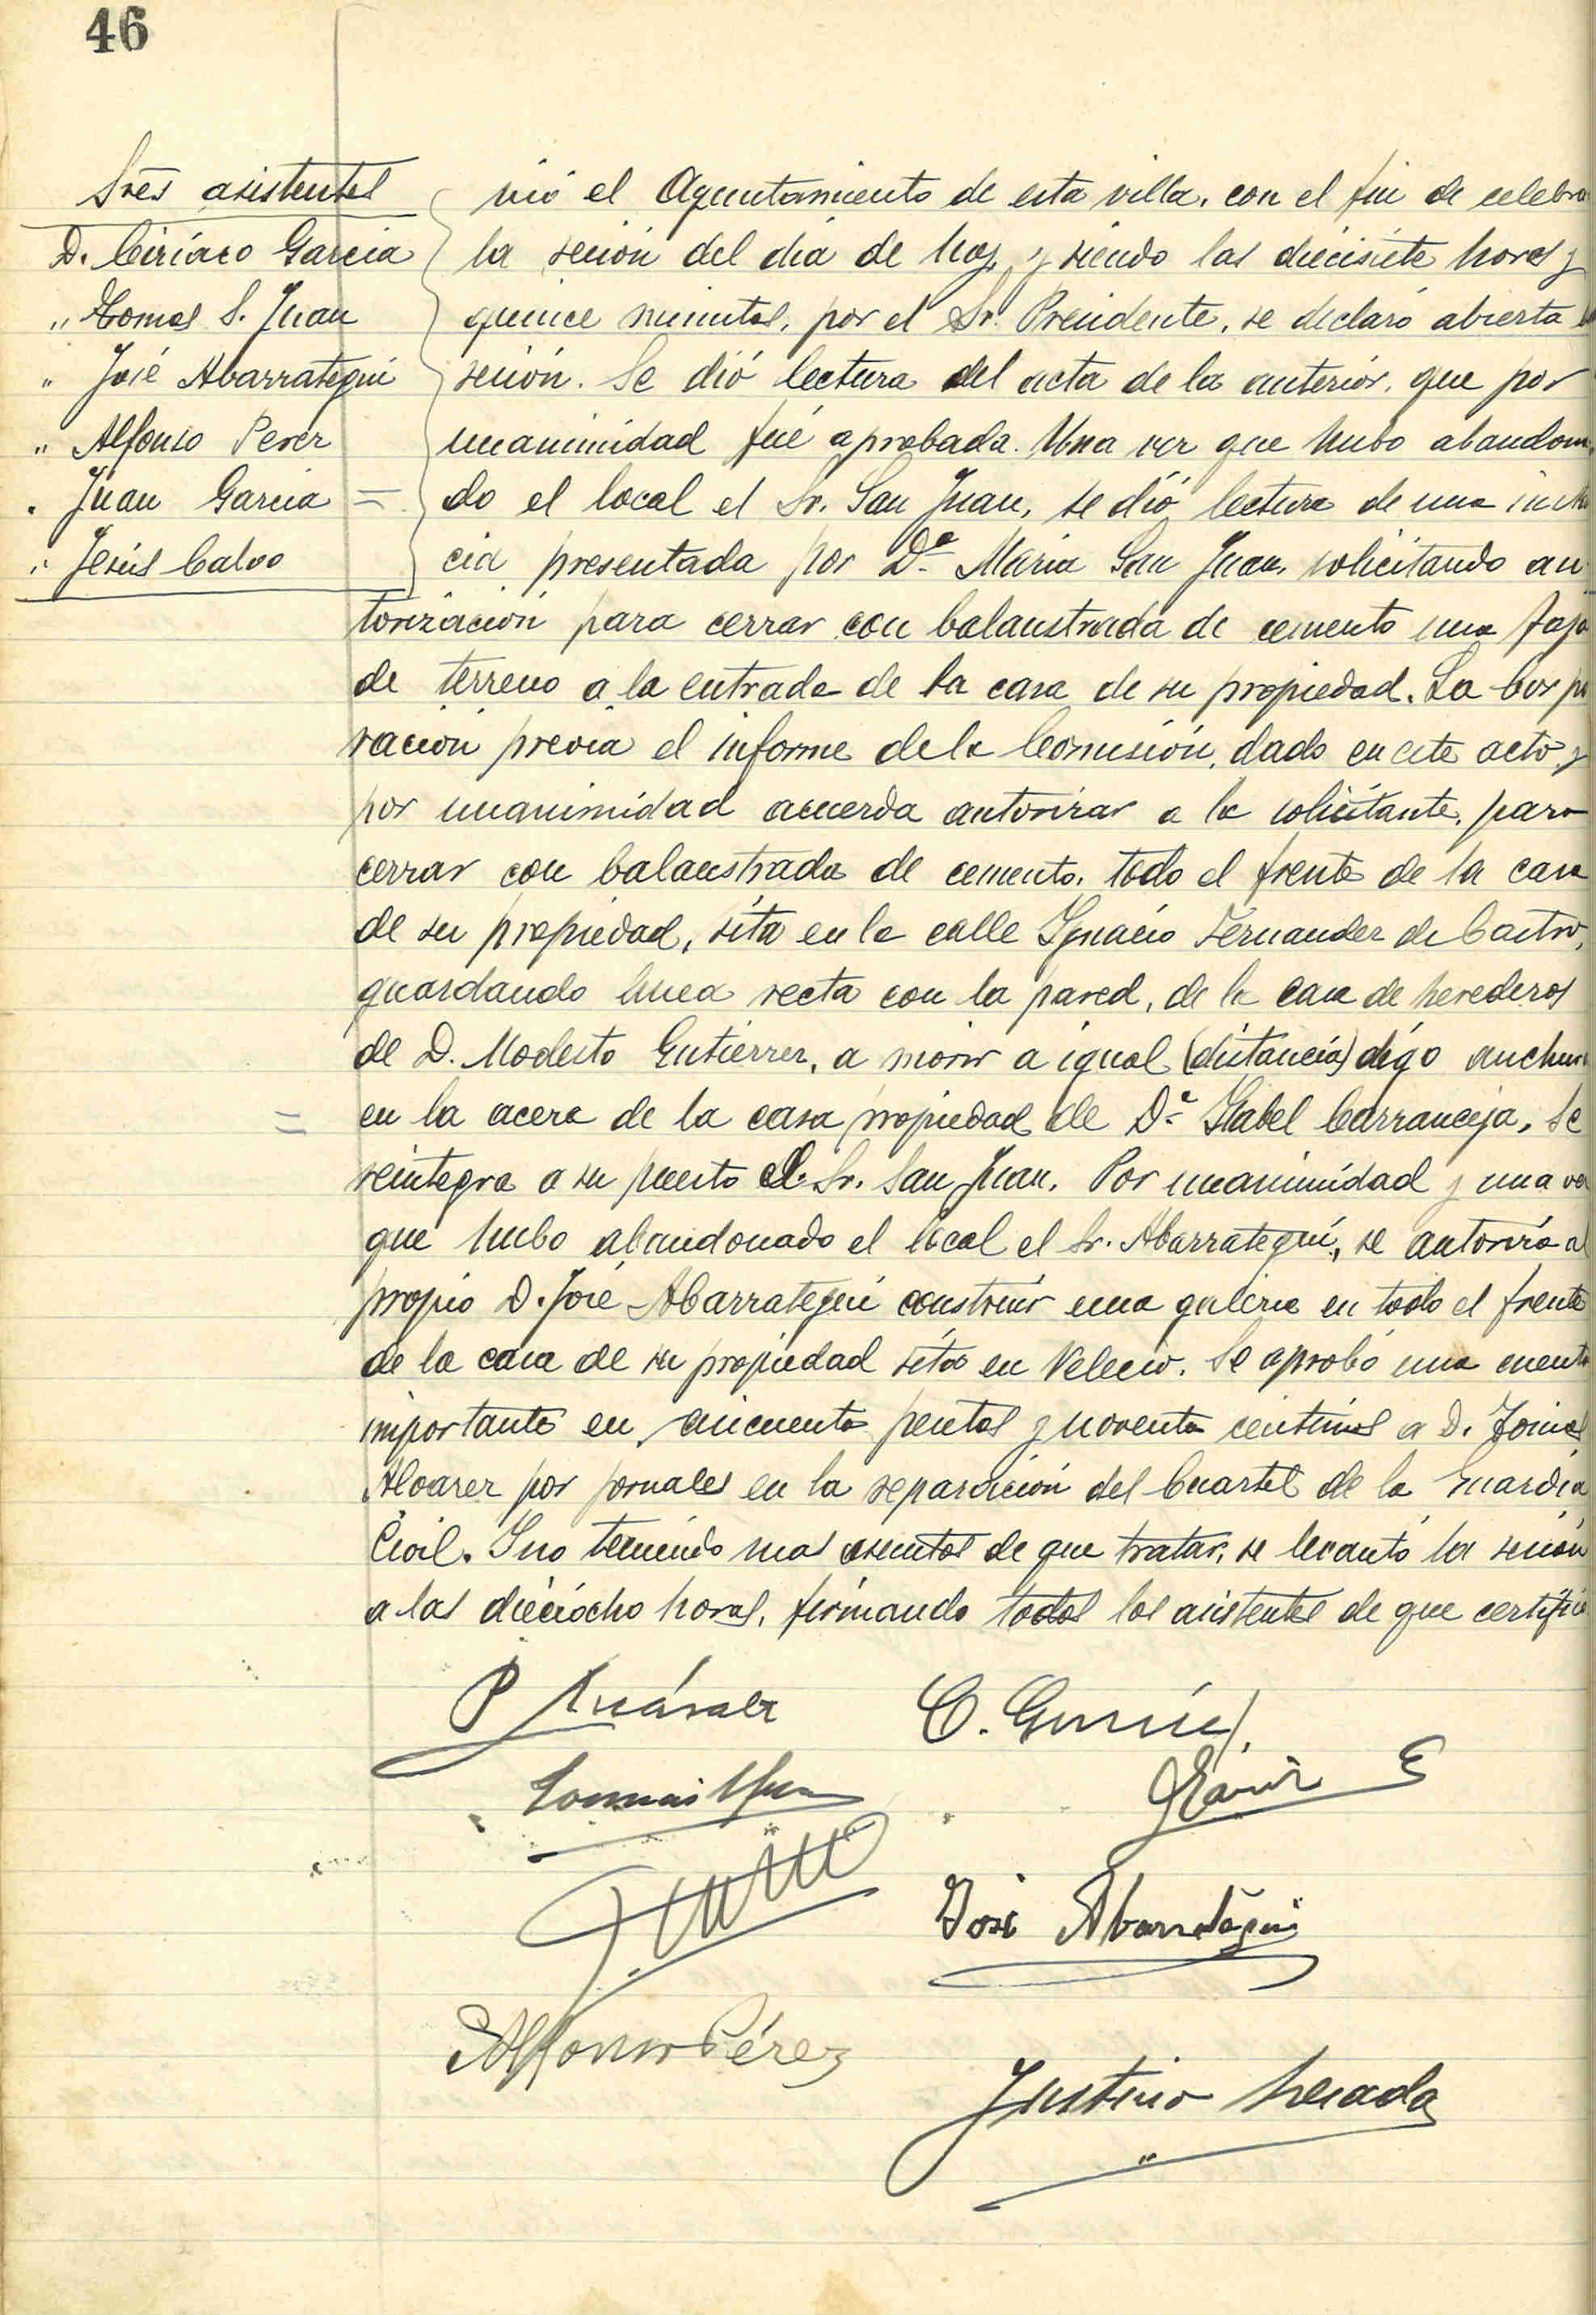 46
Sres asistentes
D. Ciriaco Garcia
" Tomas S. Juan
" José Abarrategui
" Alfonso Perez
" Juan Garcia =
" Jesús Calvo
nió el Ayuntamiento de esta villa, con el fin de celebra
la sesión del dia de hoy, y siendo las diecisiete horas y
quince minutos, por el Sr. Presidente, se declaró abierta la
sesión. Se dió lectura del acta de la anterior, que por
unanimidad fué aprobada. Una vez que hubo abandona
do el local el Sr. San Juan, se dió lectura de una instan
cia presentada por Dª Maria San Juan, solicitando au
torización para cerrar con balaustrada de cemento una faja
de terreno a la entrada de la casa de su propiedad. La Corpo
ración previa el informe de la Comisión, dado en este acto y
por unanimidad acuerda autorizar a la solicitante, para
cerrar con balaustrada de cemento, todo el frente de la casa
de su propiedad, sita en la calle Ignacio Fernandez de Castro,
guardando linea recta con la pared, de la casa de herederos
de D. Modesto Gutierrez, a morir a igual (distancia) digo anchura
= en la acera de la casa propiedad de Dª Isabel Carranceja, Se
reintegra a su puesto el Sr. San Juan. Por unanimidad y una vez
que hubo abandonado el local el Sr. Abarrategui, se autoriza al
propio D. José Abarrategui construir una galeria en todo el frente
de la casa de su propiedad sita en Velecio. Se aprobó una cuenta
importante en cincuenta pesetas y noventa centimos a D. Tomas
Alvarez por jornales en la reparación del Cuartel de la Guardia
Civil. Y no teniendo mas asuntos de que tratar, se levantó la sesión
a las dieciocho horas, firmando todos los asistentes de que certifico
C. García
José Abarrategui
Alfonso Pérez
Justino